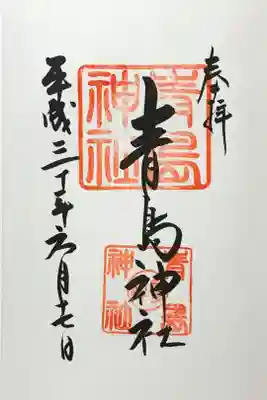 奉拝
青島神社
平成三十年六月十七日
青島
神社
青島
神社